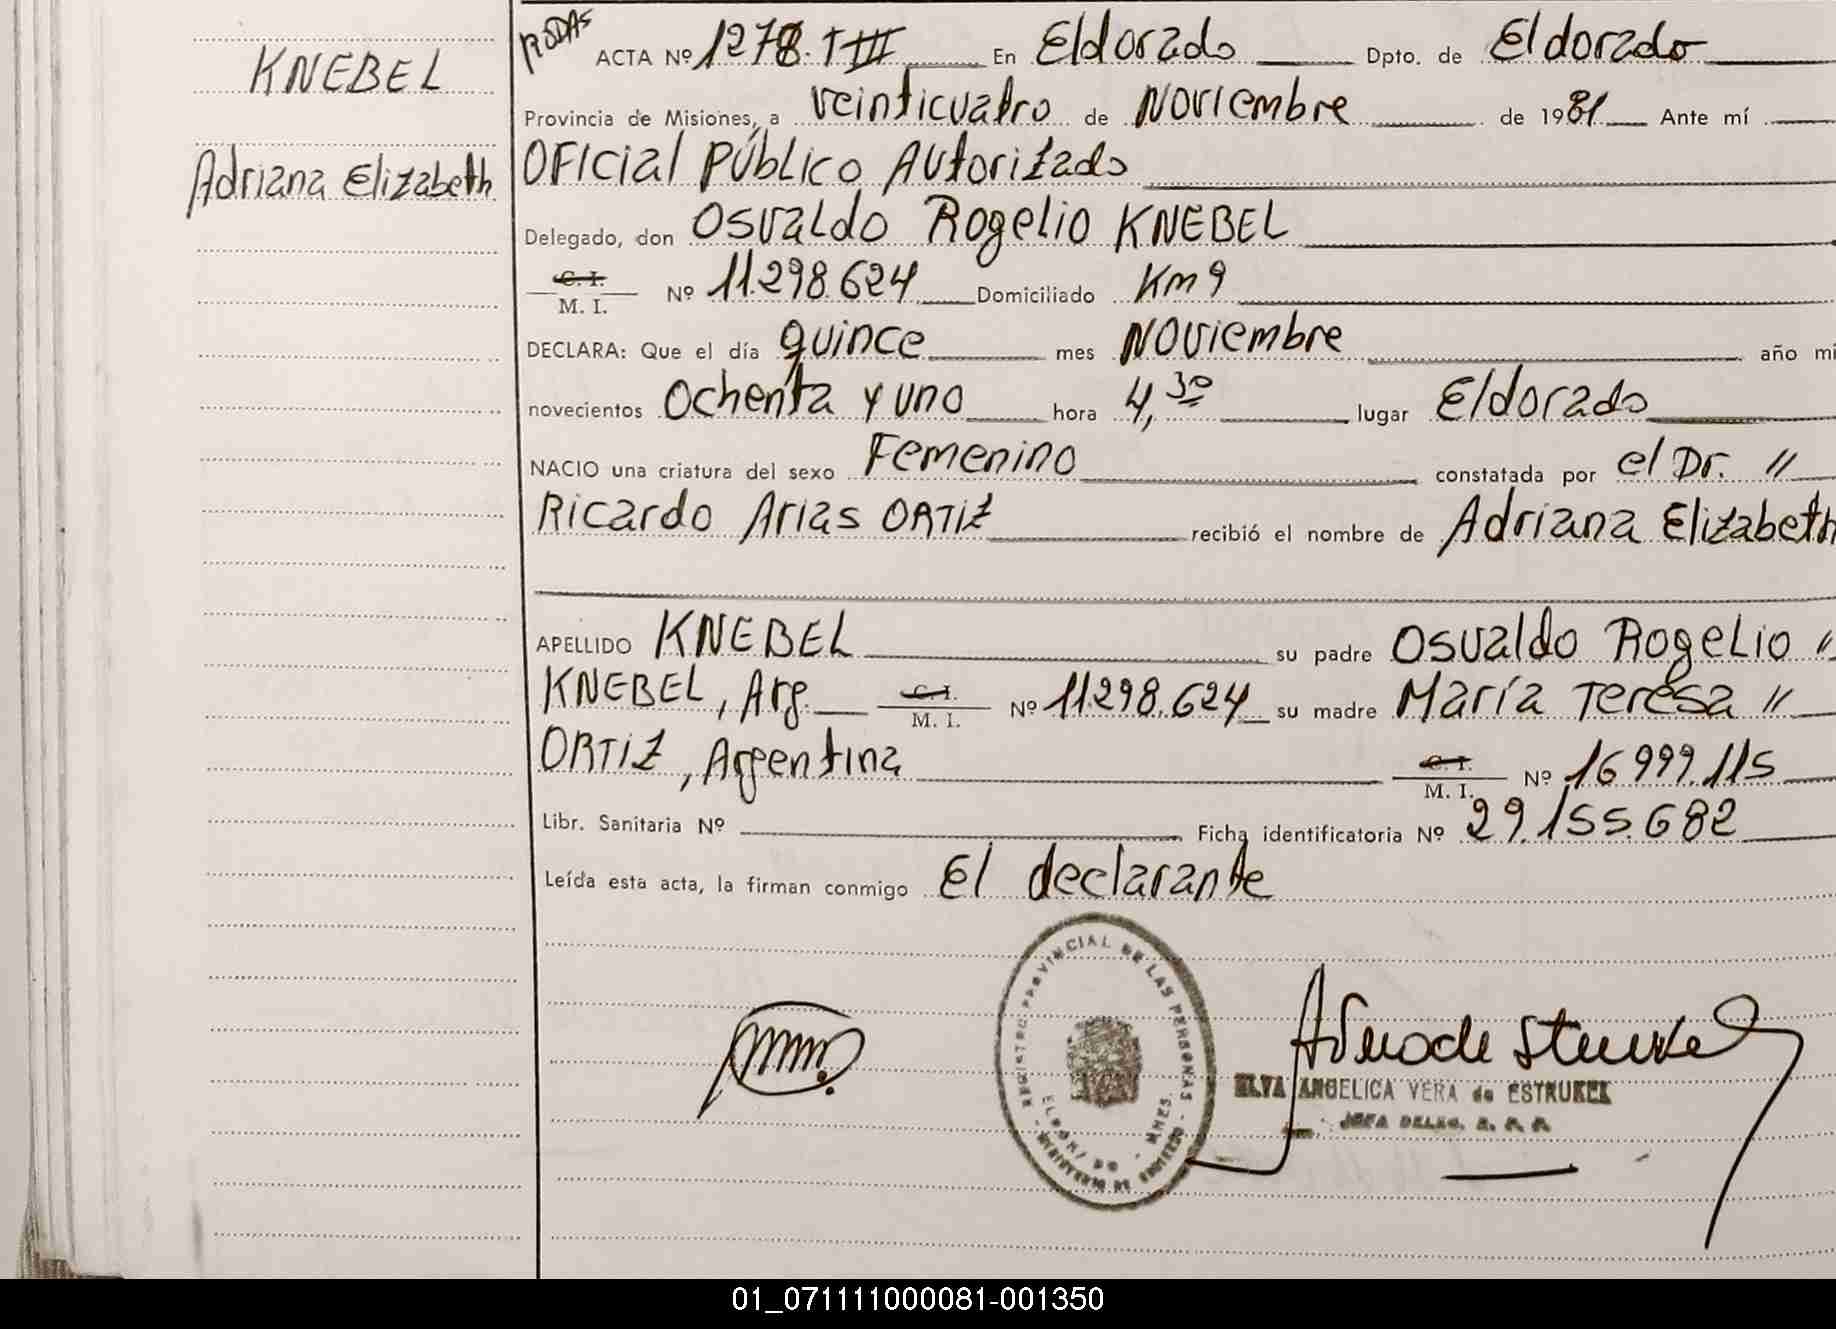 KNEBEL
Adriana Elizabeth
RODAS
ACTA Nº 1278. T III En Eldorado Dpto. de Eldorado
Provincia de Misiones, a veinticuatro de Noviembre de 1981 Ante mí
Oficial Público Autorizado
Delegado, don Osvaldo Rogelio KNEBEL
C. I.
M. I. Nº 11.298.624 Domiciliado Km 9
DECLARA: Que el día quince mes Noviembre año mi
novecientos Ochenta y uno hora 4,30 lugar Eldorado
NACIO una criatura del sexo Femenino constatada por el Dr. "
Ricardo Arias ORTIZ recibió el nombre de Adriana Elizabeth
APELLIDO KNEBEL su padre Osvaldo Rogelio "
KNEBEL, Arg. C. I. M. I. Nº 11.298.624 su madre María Teresa "
ORTIZ, Argentina C. I. M. I. Nº 16.999.115
Libr. Sanitaria Nº Ficha identificatoria Nº 29.155.682
Leída esta acta, la firman conmigo El declarante
REGISTRO PROVINCIAL DE LAS PERSONAS
ELDORADO - MNES.
MINISTERIO DE GOBIERNO
ELVA ANGELICA VERA de ESTRUKEL
JEFA DELEG. R. P. P.
01_071111000081-001350